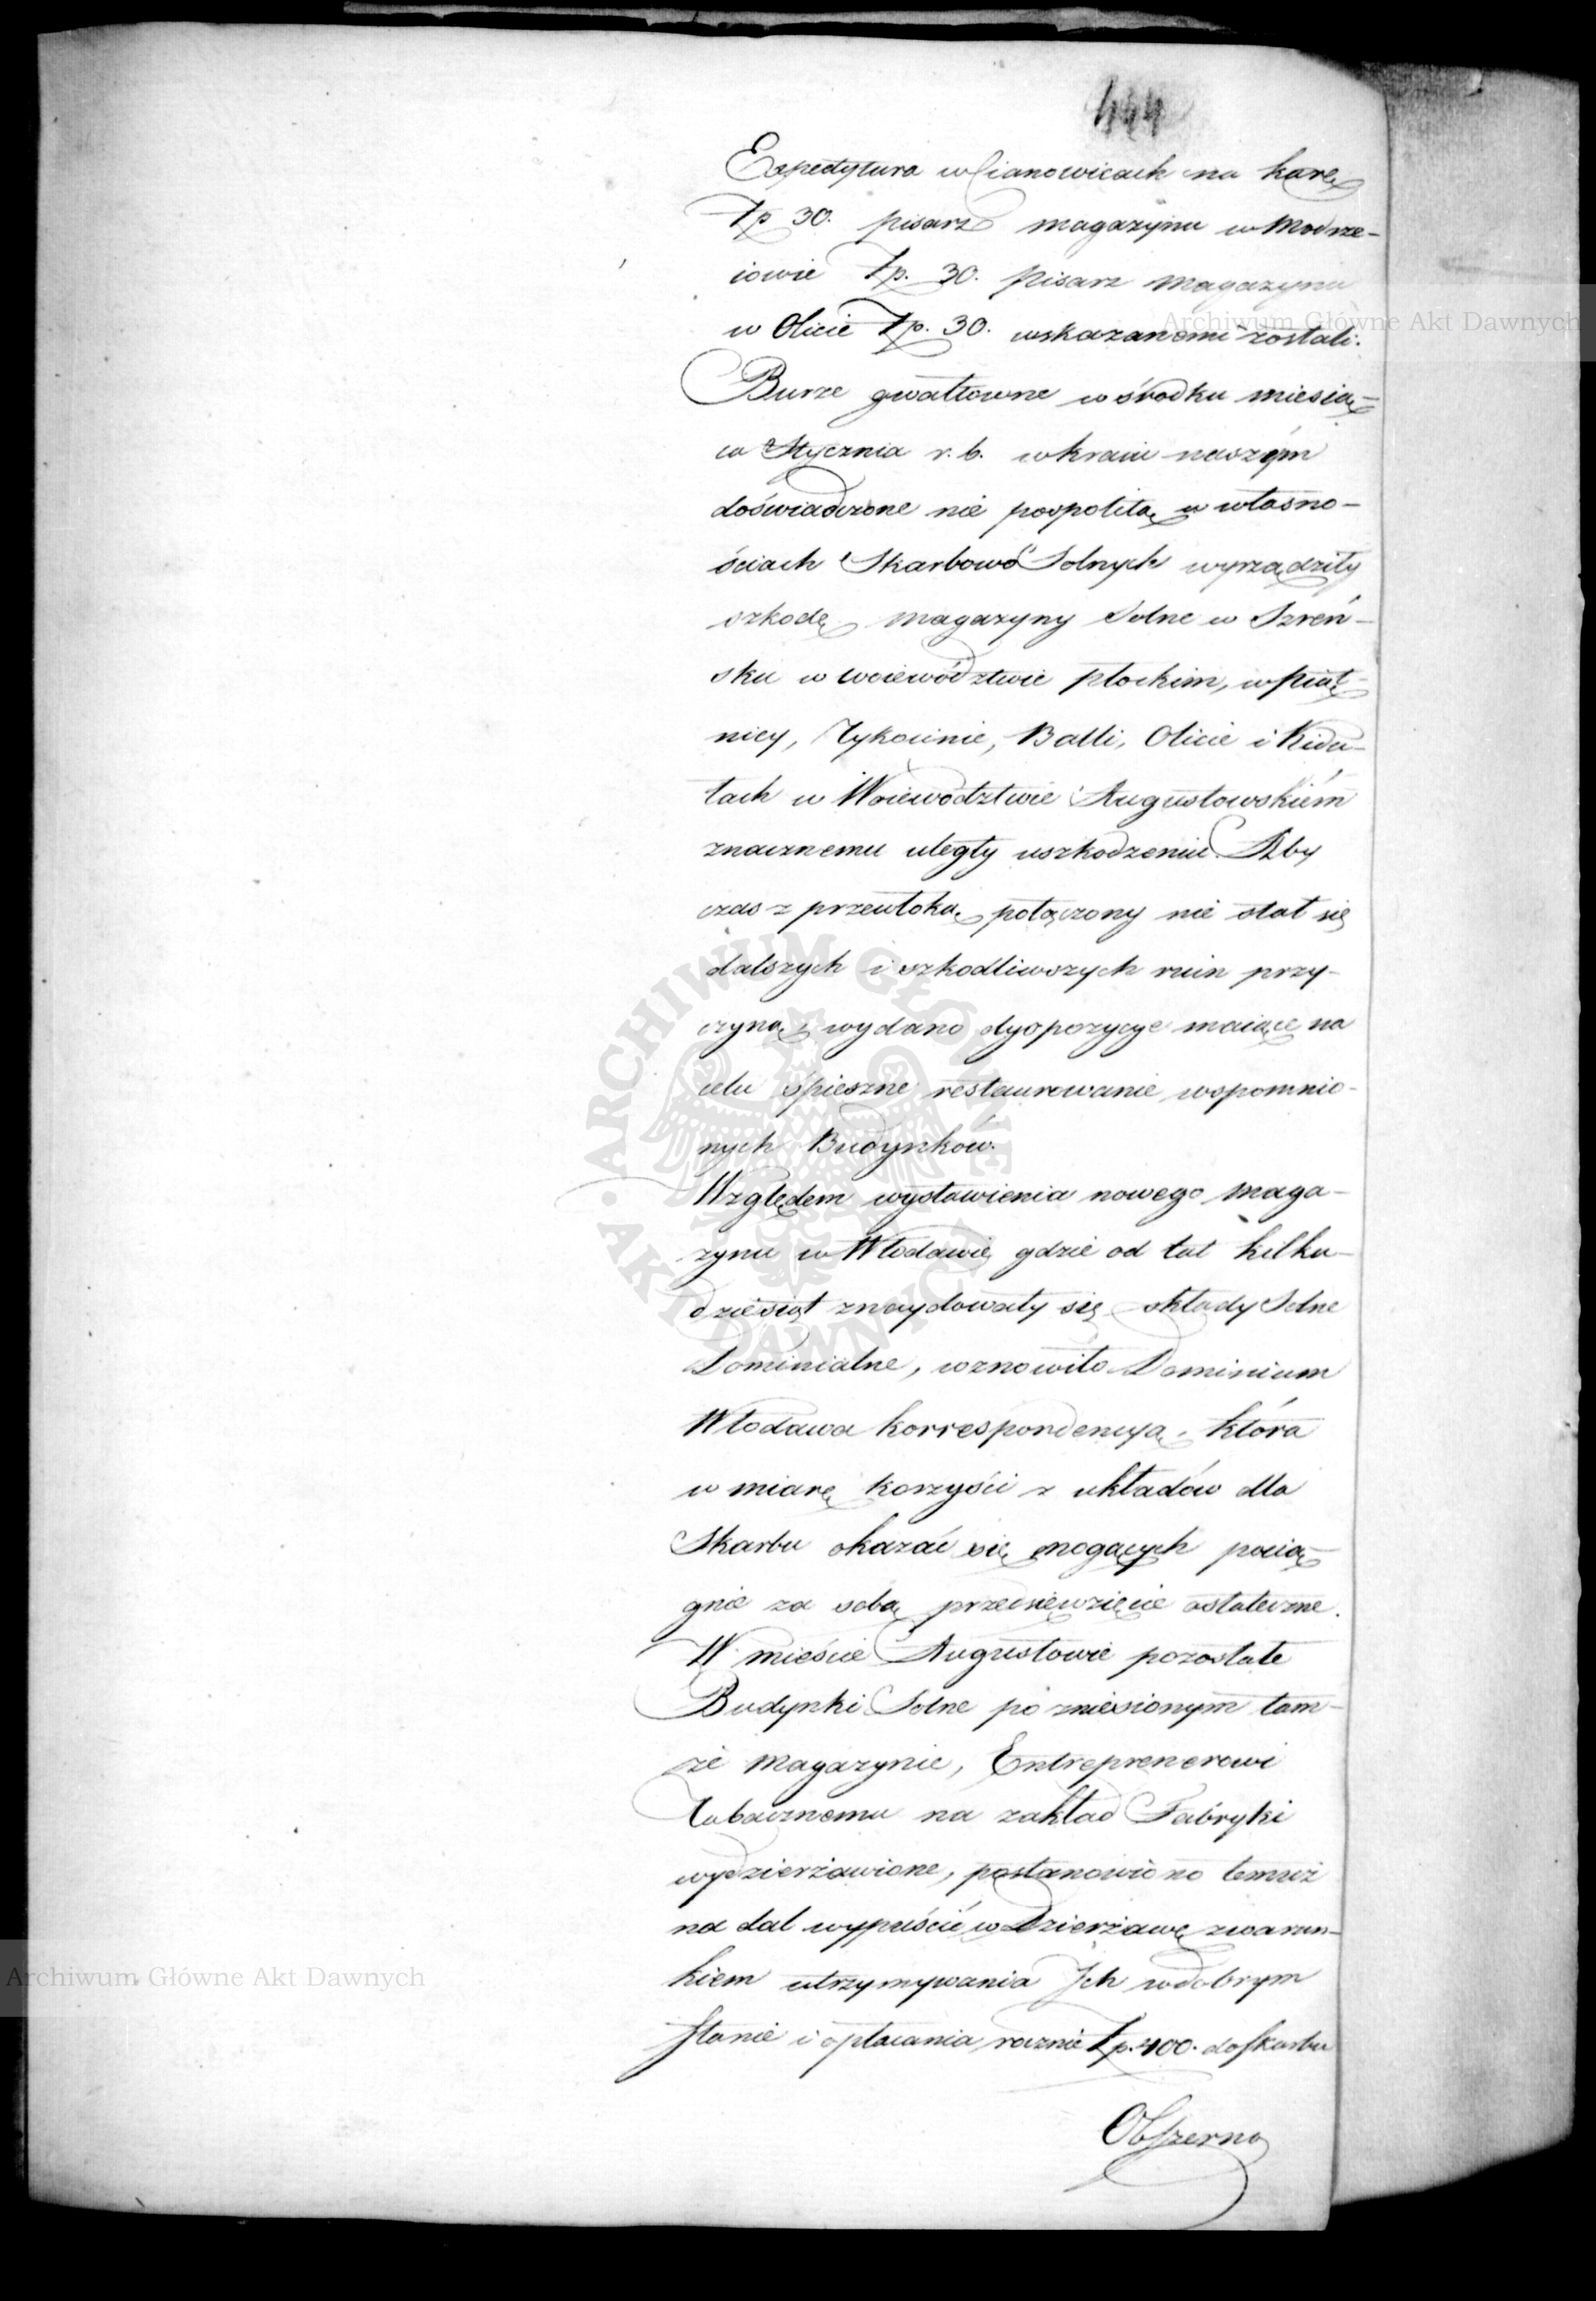 444
Expedytura w Cianowicach na karę
Zp 30. pisarz magazynu w Modrze-
iowie Zp. 30. Pisarz Magazynu
w Olicie Zp. 30. wskazanemi zostali.
Burze gwałtowne w środku miesią-
ca Stycznia r. b. w kraiu naszym
doświadczone nie pospolitą w własno-
ściach Skarbowo Solnych wyrządziły
szkodę magazyny Solne w Szreń-
sku w woiewództwie płockim, w Piąt-
nicy, Tykocinie, Balli, Olicie i Kidu-
łach w Woiewództwie Augustowskiém
znacznemu uległy uszkodzeniu. Aby
czas z przewłoką połączony nie stał się
dalszych i szkodliwszych ruin przy-
czyną, wydano dyspozycye maiące na
celu śpieszne restaurowanie wspomnio-
nych Budynków.
Względem wystawienia nowego maga-
zynu w Włodawie, gdzie od lat kilku-
dziesiąt znaydowały się składy Solne
Dominialne, wznowiło Dominium
Włodawa korrespondencyą, która
w miarę korzyści z układów dla
Skarbu okazać się mogących pocią-
gnie za sobą przedsięwzięcie ostateczne.
W mieście Augustowie pozostałe
Budynki Solne po zniesionym tam-
że Magazynie, Entreprenerowi
Tabacznemu na zakład Fabryki
wydzierżawione, postanowiono temuż
na dal wypuścić w Dzierżawę z warun-
kiem utrzymywania Ich w dobrym
stanie i opłacania rocznie Zp. 400. do skarbu
Obszerna
Archiwum Główne Akt Dawnych
Archiwum Główne Akt Dawnych
ARCHIWUM GŁÓWNE • AKT DAWNYCH •